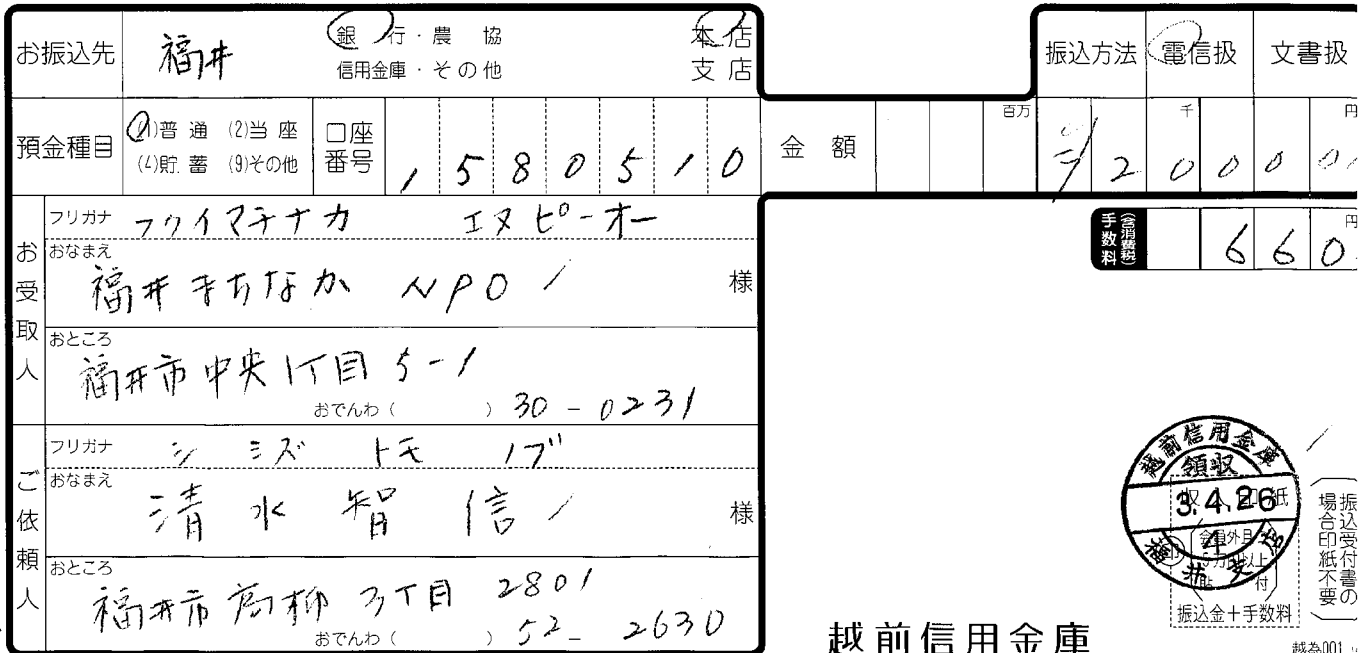 お振込先 福井 銀行・農協 本店
信用金庫・その他 支店
振込方法 電信扱 文書扱
預金種目 (1)普通 (2)当座
(4)貯蓄 (9)その他
口座番号 1580510
金額 百万 千 円
20000
手数料 (含消費税) 660 円
お受取人
フリガナ フクイマチナカ エヌピーオー
おなまえ
福井まちなか NPO 様
おところ
福井市中央1丁目 5-1
おでんわ ( ) 30-0231
ご依頼人
フリガナ シミズ トモノブ
おなまえ
清水智信 様
おところ
福井市高柳 3丁目 2801
おでんわ ( ) 52-2630
越前信用金庫
領収
3.4.26
4
福井支店
振込金+手数料
振込受付書の
場合印紙不要
越前信用金庫
越為001